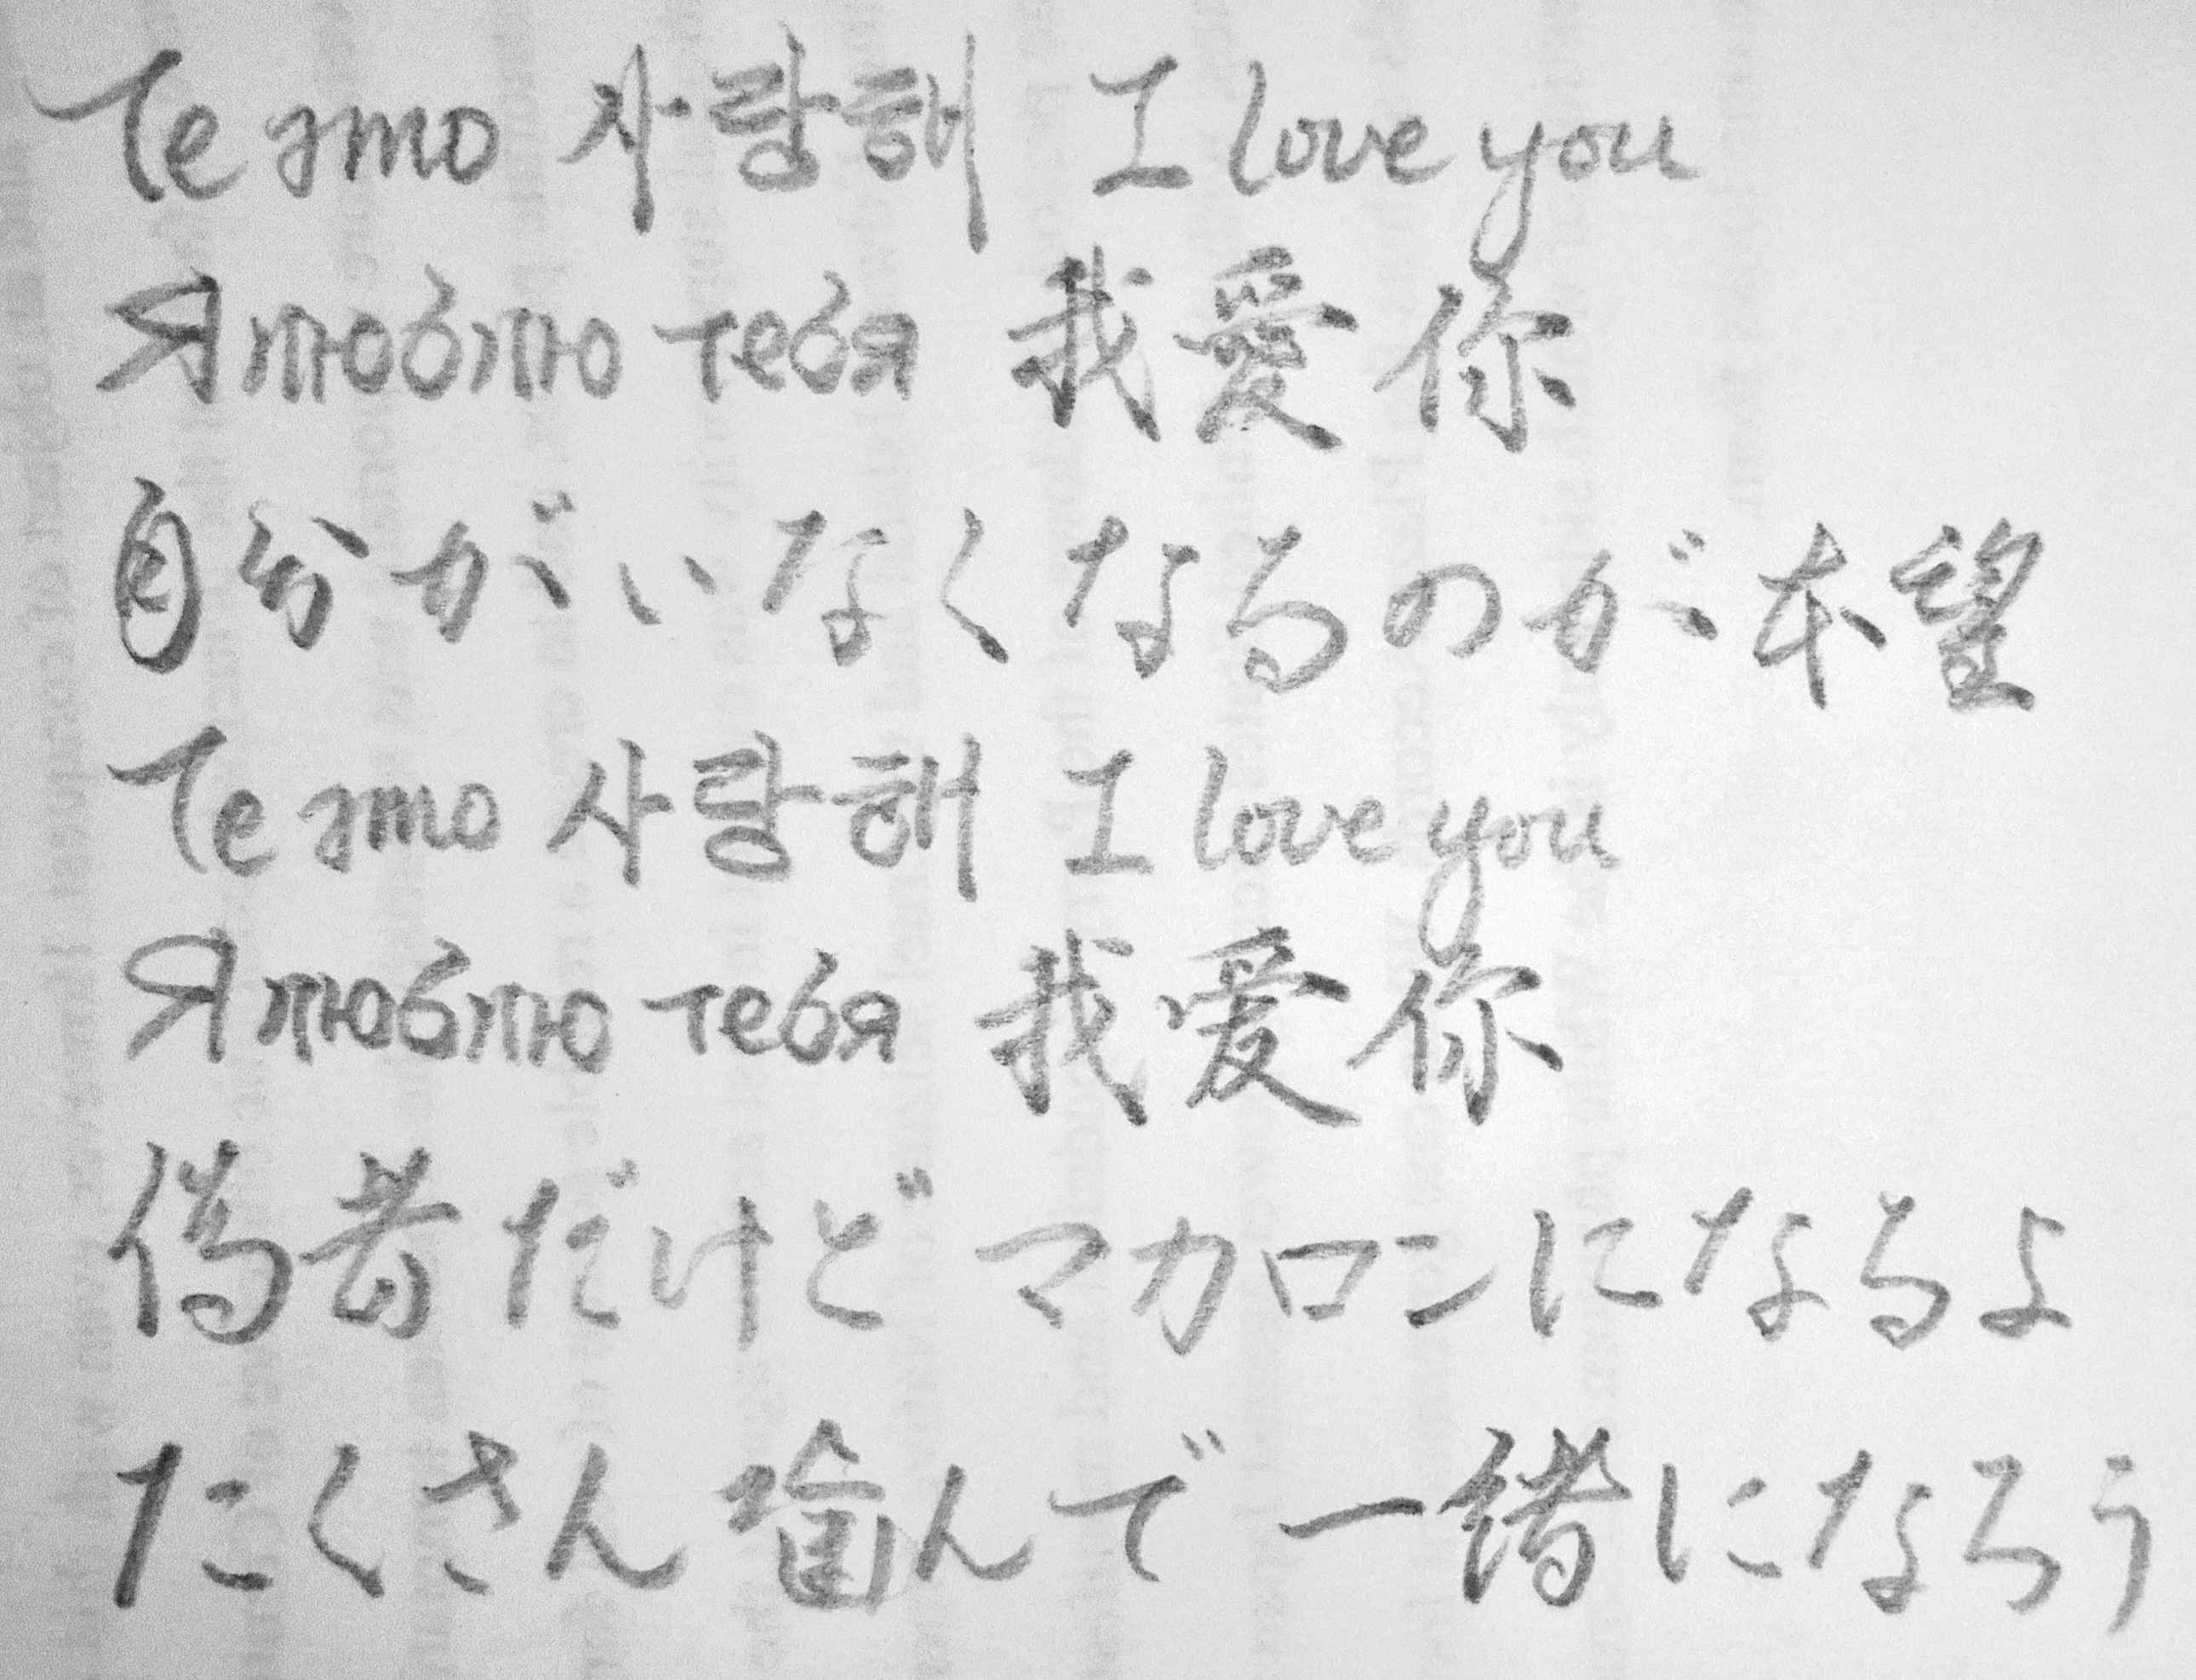 Te amo 사랑해 I love you
Я люблю тебя 我愛你
自分がいなくなるのが本望
Te amo 사랑해 I love you
Я люблю тебя 我愛你
偽者だけどマカロンになるよ
たくさん噛んで一緒になろう